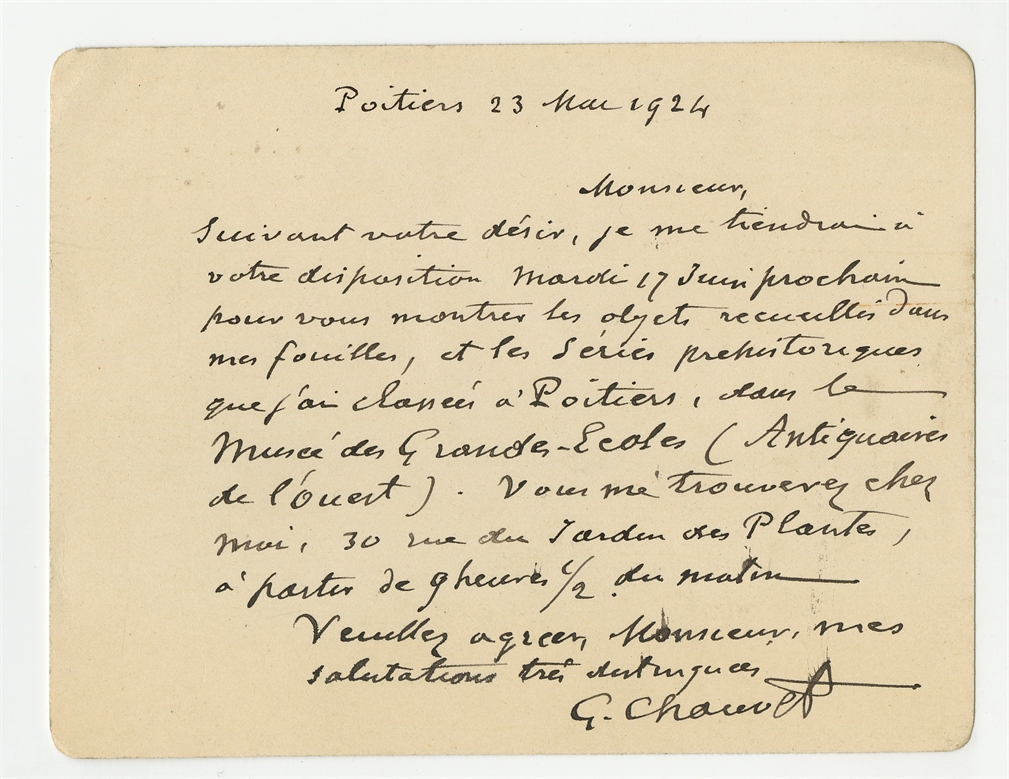 Poitiers 23 Mai 1924
Monsieur,
Suivant votre désir, je me tiendrai à
votre disposition Mardi 17 Juin prochain
pour vous montrer les objets recueillis dans
mes fouilles, et les Séries prehistoriques
que j'ai classées à Poitiers, dans le
Musée des Grandes-Ecoles (Antiquaires
de l'Ouest). Vous me trouverez chez
moi, 30 rue du Jardin des Plantes,
à partir de 9 heures 1/2 du matin
Veuillez agréer, Monsieur, mes
salutations très distinguées
G. Chauvet